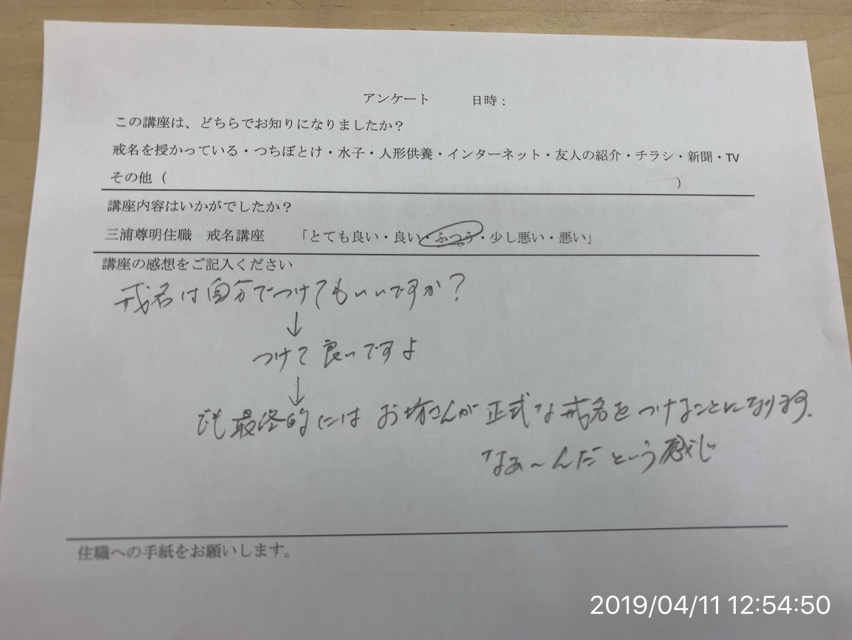 アンケート　　日時：
この講座は、どちらでお知りになりましたか？
戒名を授かっている・つちぼとけ・水子・人形供養・インターネット・友人の紹介・チラシ・新聞・TV
その他（　　　　　　　　　　　　　　　　　　　　）
講座内容はいかがでしたか？
三浦尊明住職　戒名講座　「とても良い・良い・ふつう・少し悪い・悪い」
講座の感想をご記入ください
戒名は自分でつけてもいいですか？
↓
つけて良いですよ
↓
でも最終的にはお坊さんが正式な戒名をつけることになります。
なぁ～んだという感じ
住職への手紙をお願いします。
2019/04/11 12:54:50